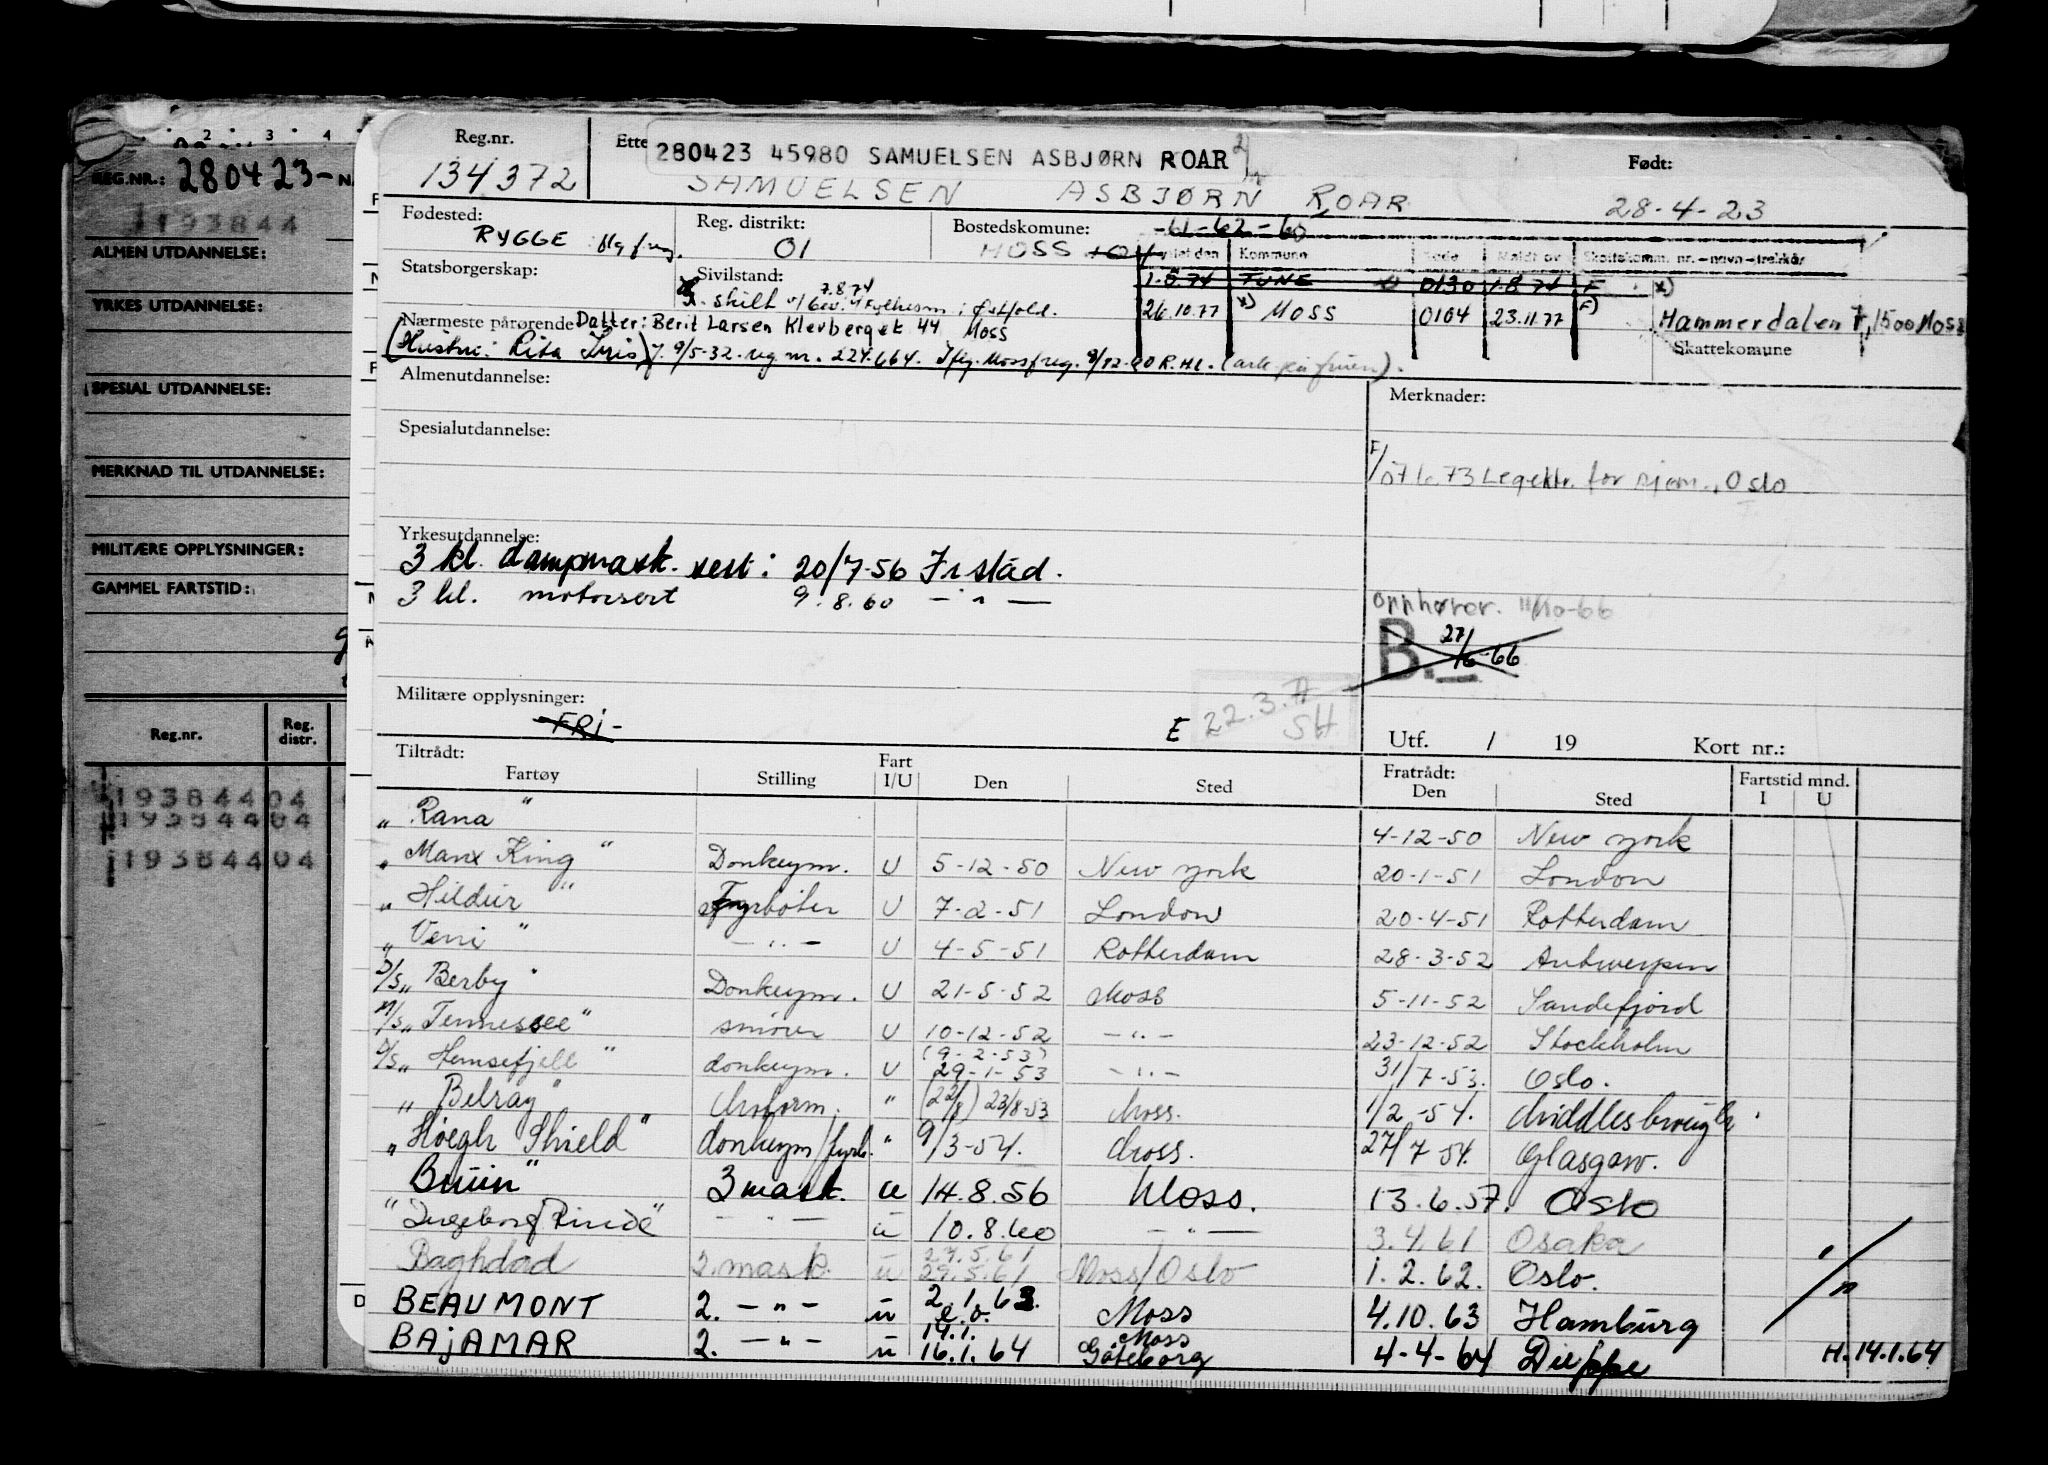 2 3 4
REG.NR.: 280423- N
193844
ALMEN UTDANNELSE:
YRKES UTDANNELSE:
SPESIAL UTDANNELSE:
MERKNAD TIL UTDANNELSE:
MILITÆRE OPPLYSNINGER:
GAMMEL FARTSTID:
Reg.nr. Reg. distr.
193844 04
193844 04
193844 04
Reg.nr. Ette 280423 45980 SAMUELSEN ASBJØRN ROAR 2) Født:
134372 SAMUELSEN ASBJØRN ROAR 28-4-23
Fødested: Reg. distrikt: Bostedskomune: -61-62-60
RYGGE flg freg. 01 MOSS 104
Kommune Kode Meldt av Skattekomm. nr. - navn - trekkår
Statsborgerskap: Sivilstand: 1-8 74 TUNE 0130 1-8 74 F x)
7.8 74
skilt v/bev. v/Fylkesm i Østfold. 26.10.77 x) MOSS 0104 23.11.77 F) Hammerdalen 7, 1500 Moss
Nærmeste pårørende Datter: Berit Larsen Kleverget 44 Moss
Skattekomune
(Hustru: Rita Iris) f. 9/5-32. reg nr. 224.664. Iflg. Moss freg. 9/12-60 R.Hl. (ark. på fruen).
Almenutdannelse: Merknader:
Spesialutdannelse:
F/ 07 6.73 Legektr. for sjøm., Oslo
Yrkesutdannelse:
3 kl. dampmask. sert: 20/7-56 Frstad.
3 kl. motorsert 9.8.60 -"-
opphører. 11/10-66
B. 27/6-66
Militære opplysninger:
FRI- E 22.3.7 SH
Utf. / 19 Kort nr.:
Tiltrådt: Fratrådt: Fartstid mnd.
Fartøy Stilling Fart I/U Den Sted Den Sted I U
"Rana" 4-12-50 New York
"Manx King" Donkeym. U 5-12-50 New York 20-1-51 London
"Hildur" Fyrbøter U 7-2-51 London 20-4-51 Rotterdam
"Veni" -"- U 4-5-51 Rotterdam 28-3-52 Antwerpen
D/S "Berby" Donkeym. U 21-5-52 Moss 5-11-52 Sandefjord
M/S "Tennessee" smører U 10-12-52 -"- 23-12-52 Stockholm
(9-2-53)
D/S "Hemsefjell" donkeym. U 29-1-53 -"- 31/7-53. Oslo.
"Belray" Motorm. " (22/8) 23/8-53 Moss. 1/2-54. Middlesbrough.
"Høegh Shield" donkeym/fyrb. " 9/3-54. Moss. 27/7 54. Glasgow.
Bruin" 3 mask. u 14.8.56 Moss. 13.6.57. Oslo
"Ingeborg Rinde" -"- u 10.8.60 -"- 3.4.61 Osaka
27.5.61
Baghdad 2. mask. u 29.5.61 Moss/Oslo 1.2.62. Oslo.
BEAUMONT 2. -"- u 2.1.63. e.o. Moss 4.10.63 Hamburg
14.1. Moss
BAJAMAR 2. -"- u 16.1.64 Göteborg 4-4-64 Dieppe H.14.1.64